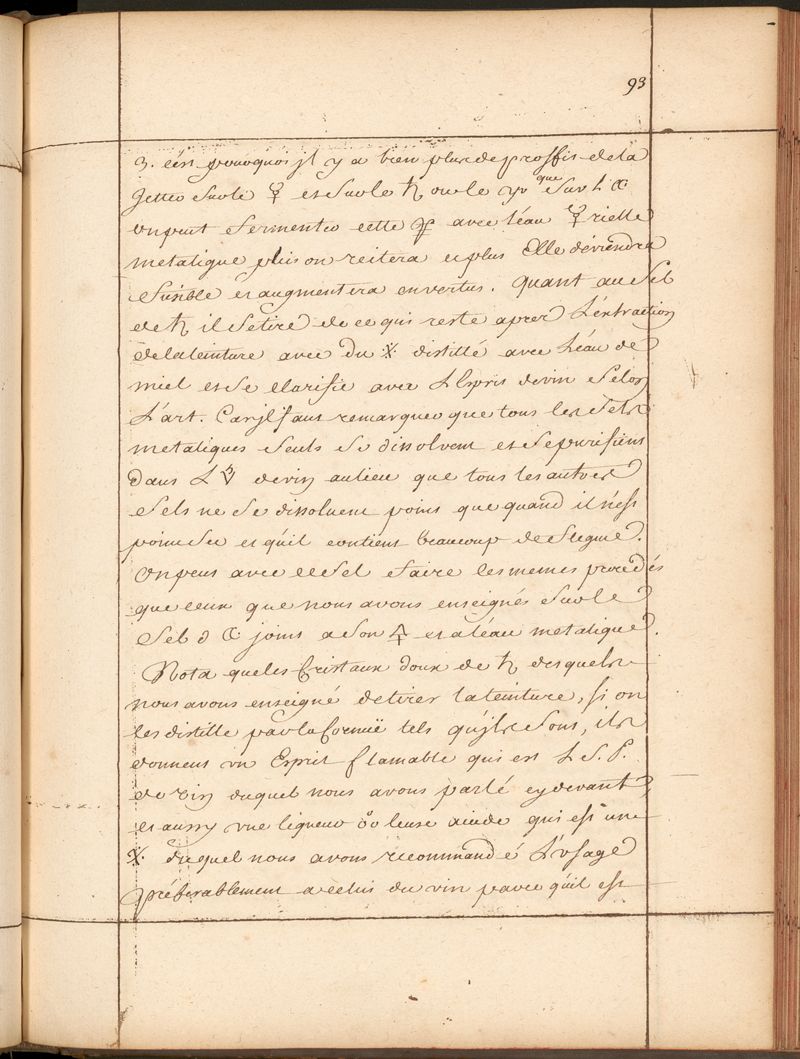 93
3. cest pourquoi jl y a bien plus de proffit de la
Jetter sur le ☿ et sur le ♄ ou le que sur L ☾
on peut fermenter cette avec l'eau ☿rielle
metalique puis on reitera et plus Elle deviendra
fusible et augmentera en vertus. Quant au Sel
de ♄ il se tire de ce qui reste aprer L'extraction
de la teinture avec du distillé avec L'eau de
miel et se clarifie avec L Esprit de vin selon
L'art. Car jl faut remarquer que tous les sels
metaliques seuls se dissolvent et se purifient
dans L de vin au lieu que tous les autres
sels ne se dissoluent point que quand il n'est
point sec et qu'il contient beaucoup de flegme.
On peut avec ce sel faire les memes procedés
que ceux que nous avons enseignés sur le
Sel d ☾ joint a son 🜍 et a l'eau metalique.
Nota que les Cristaux doux de ♄ desquels
nous avons enseigné de tirer la teinture, si on
les distille par la Cornuë tels qu'jls sont, ils
donnent vn Esprit flamable qui est L S. P.
de vin duquel nous avons parlé cy devant,
et aussy vne liqueur acide qui est une
duquel nous avons recommandé L'vsage
préferablement a celui du vin parce qu'il est